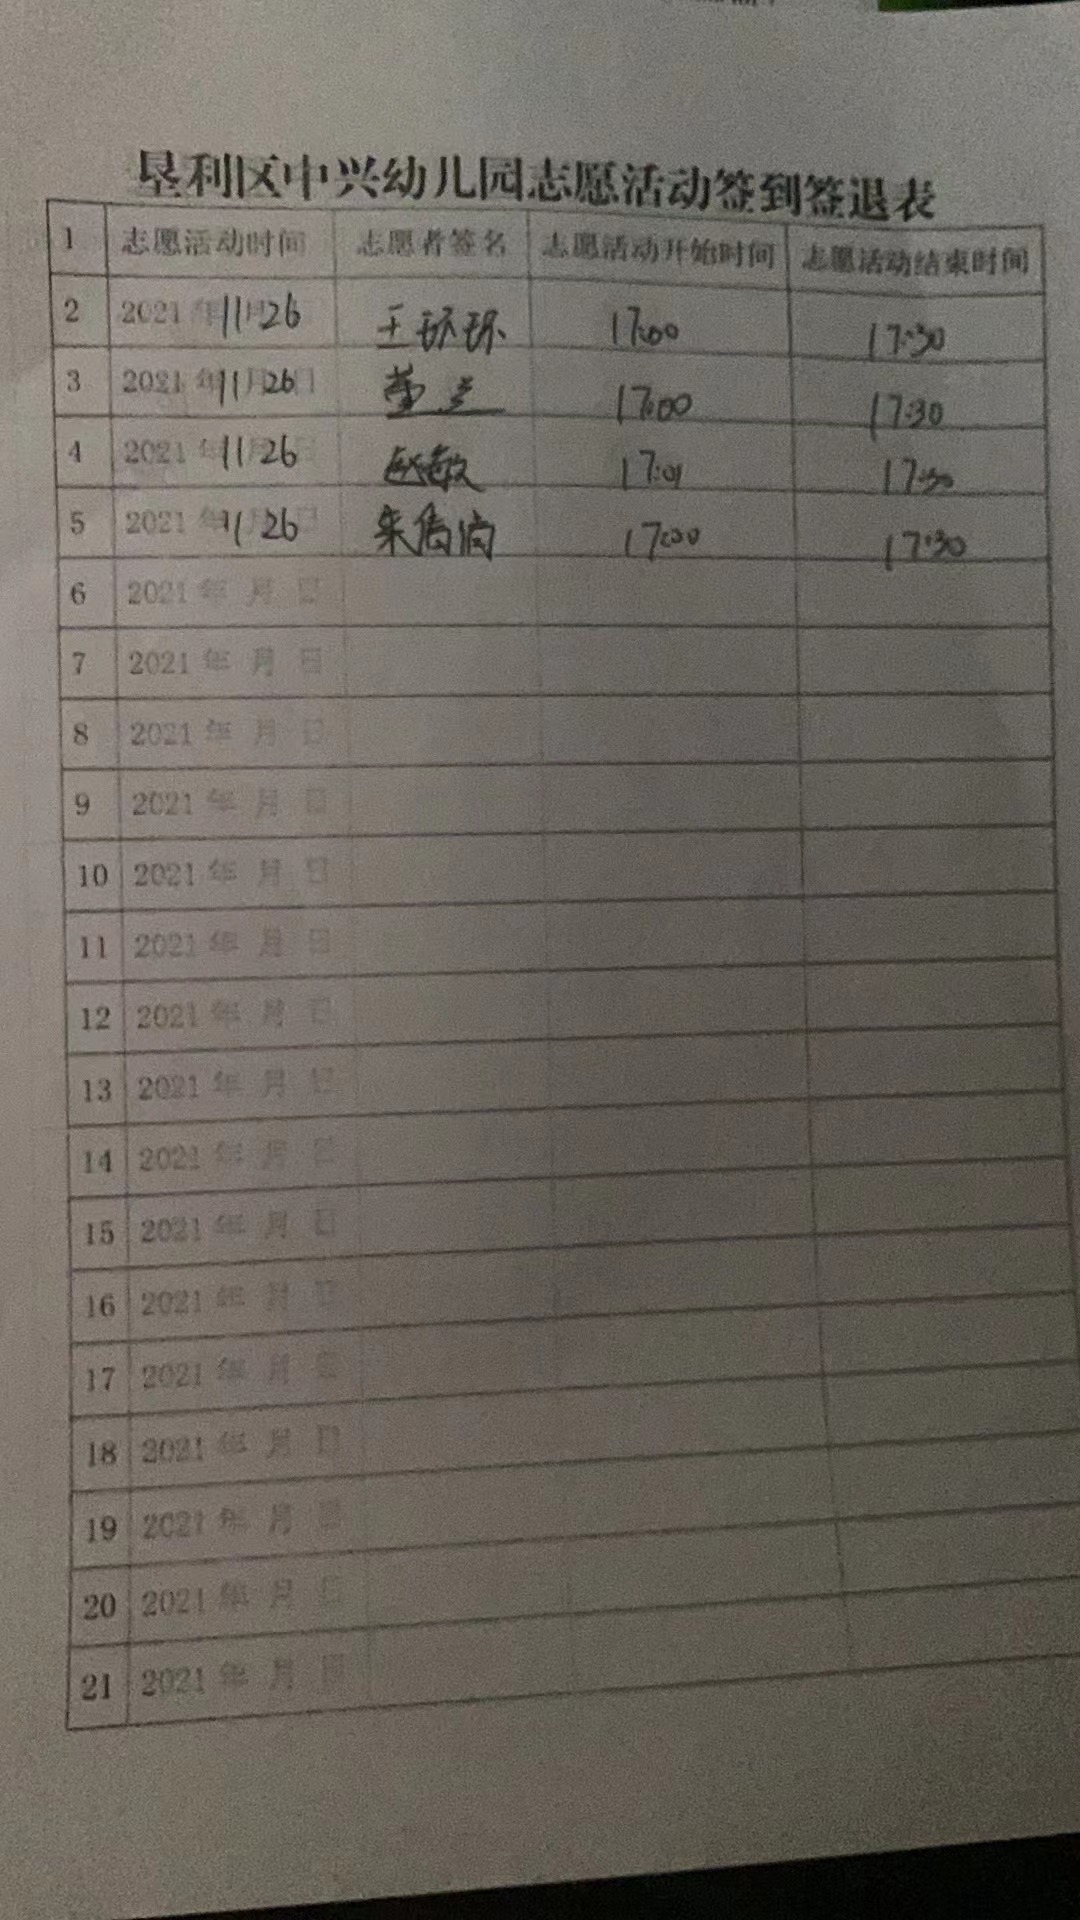 垦利区中兴幼儿园志愿活动签到签退表
1 志愿活动时间 志愿者签名 志愿活动开始时间 志愿活动结束时间
2 2021年11月26 王环环 17:00 17:30
3 2021年11月26日 17:00 17:30
4 2021年11月26日 赵敏 17:01 17:30
5 2021年11月26日 朱倩倩 17:00 17:30
6 2021年 月 日
7 2021年 月 日
8 2021年 月 日
9 2021年 月 日
10 2021年 月 日
11 2021年 月 日
12 2021年 月 日
13 2021年 月 日
14 2021年 月 日
15 2021年 月 日
16 2021年 月 日
17 2021年 月 日
18 2021年 月 日
19 2021年 月 日
20 2021年 月 日
21 2021年 月 日